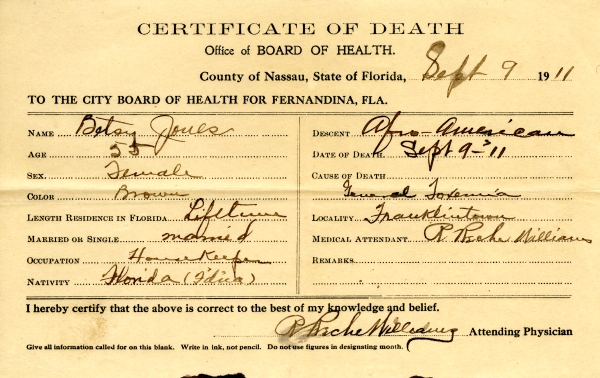 CERTIFICATE OF DEATH
Office of BOARD OF HEALTH.
County of Nassau, State of Florida, Sept 9 1911
TO THE CITY BOARD OF HEALTH FOR FERNANDINA, FLA.
NAME Betsy Jones
AGE 55
SEX. Female
COLOR Brown
LENGTH RESIDENCE IN FLORIDA Lifetime
MARRIED OR SINGLE married
OCCUPATION Housekeeper
NATIVITY Florida
DESCENT Afro-American
DATE OF DEATH Sept 9-'11
CAUSE OF DEATH
General Toxemia
LOCALITY Franklintown
MEDICAL ATTENDANT Williams
REMARKS
I hereby certify that the above is correct to the best of my knowledge and belief.
Williams Attending Physician
Give all information called for on this blank. Write in ink, not pencil. Do not use figures in designating month.